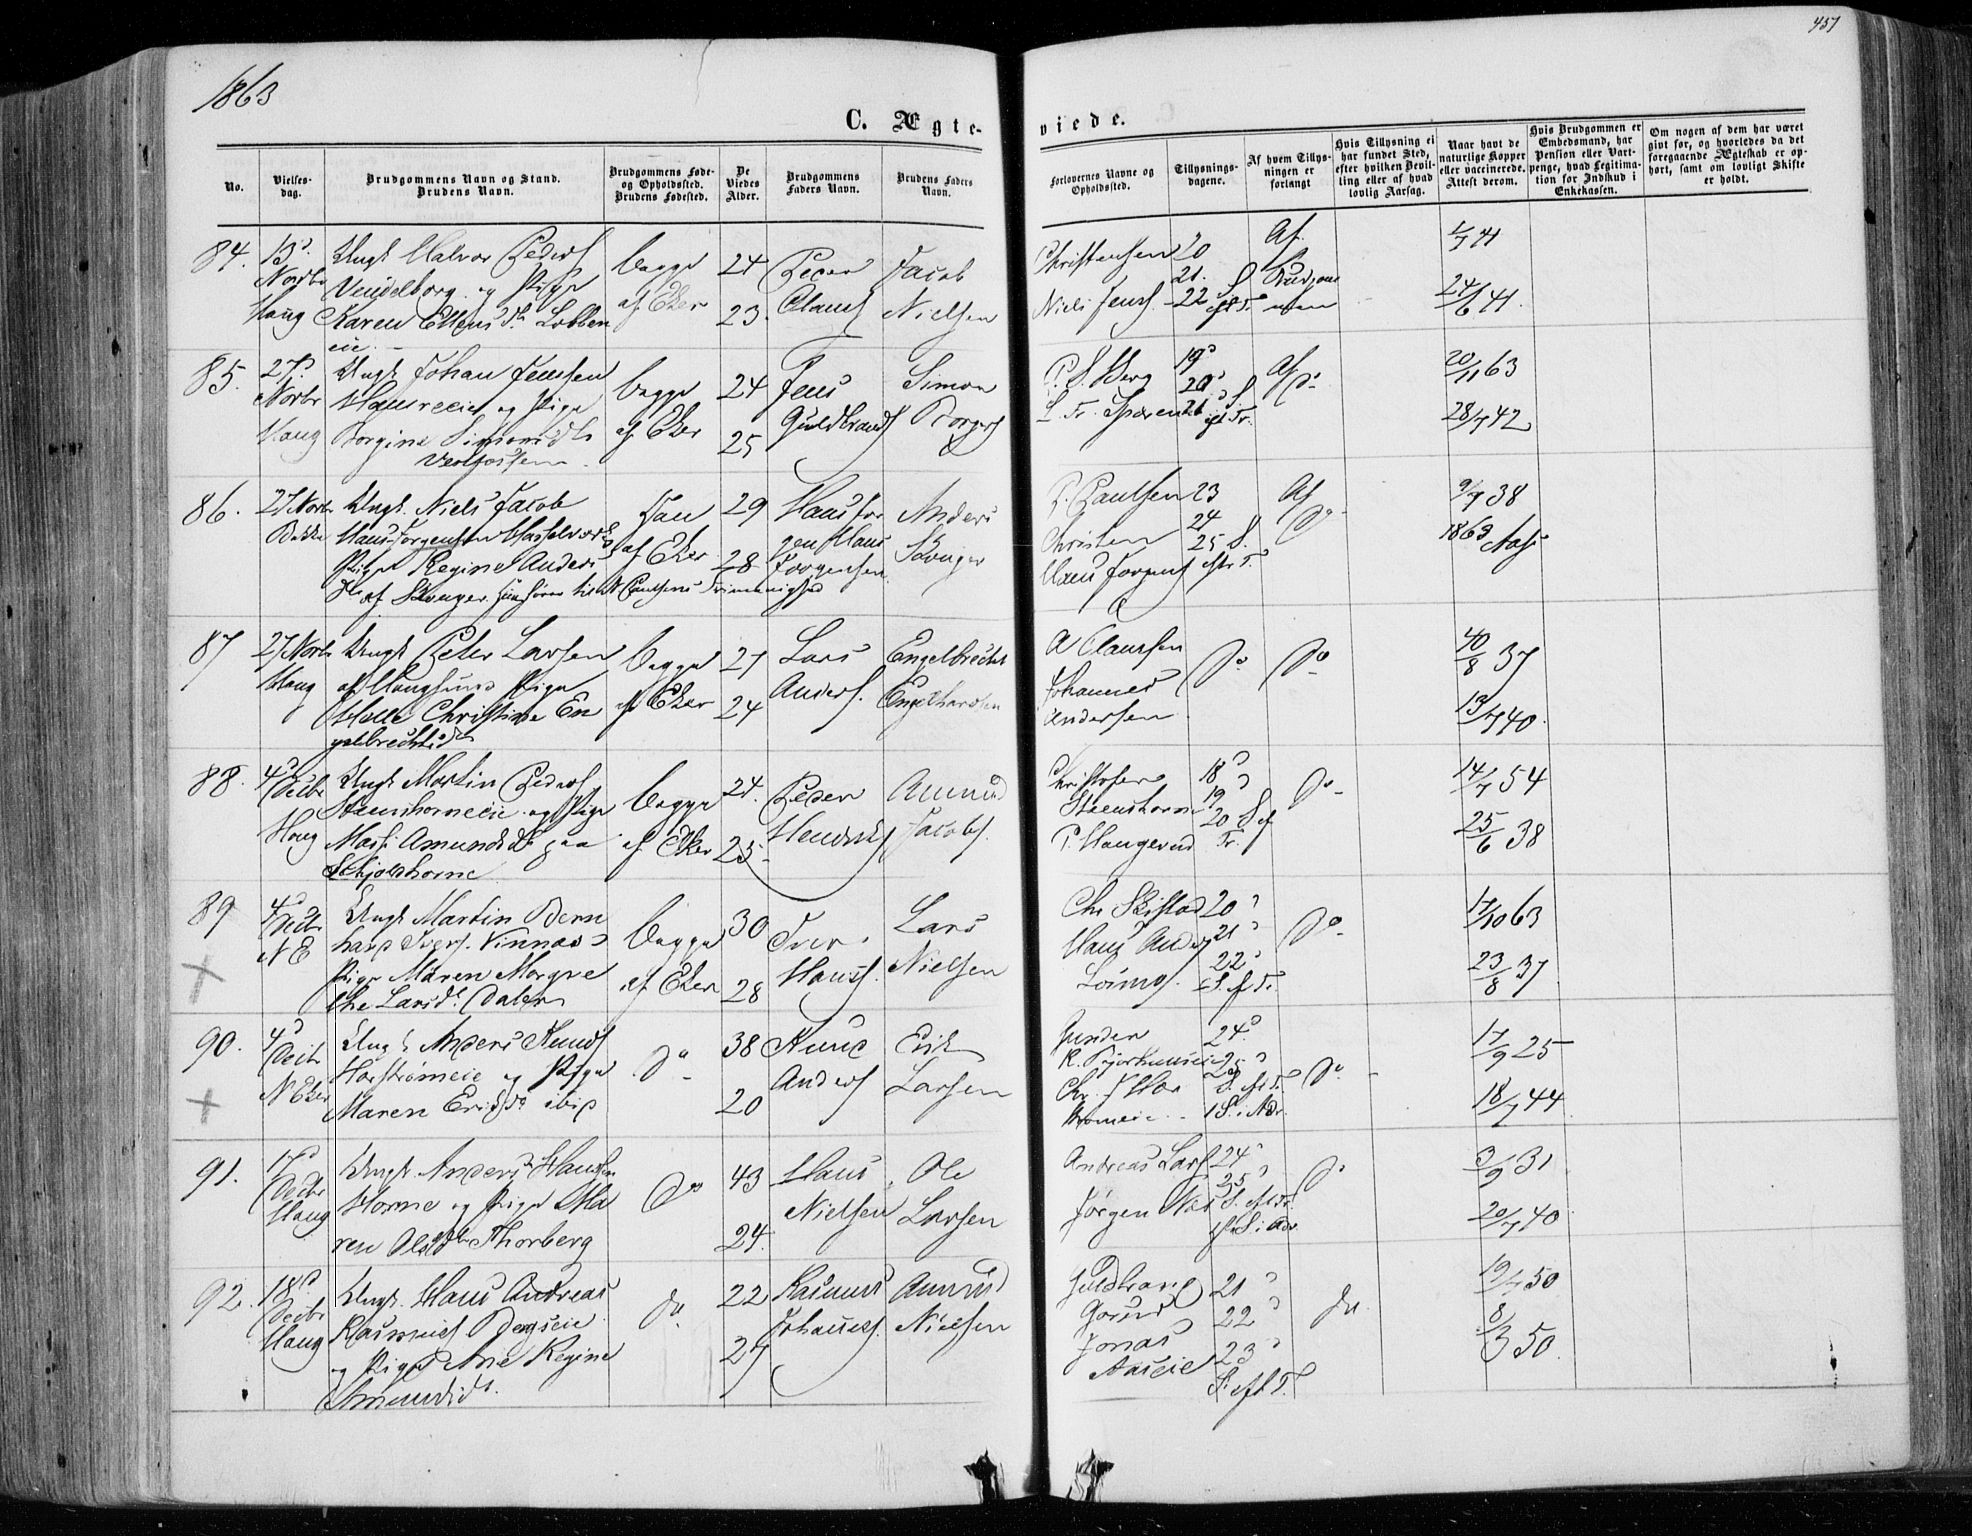 1863
457
C. Ægte-
viede.
No.
Vielses-
dag.
Brudgommens Navn og Stand.
Brudens Navn.
Brudgommens Føde-
og Opholdssted.
Brudens Fødested.
De
Viedes
Alder.
Brudgommens
Faders Navn.
Brudens Faders
Navn.
Forlovernes Navne og
Opholdssted.
Tillysnings-
dagene.
Af hvem Tillys-
ningen er
forlangt
Hvis Tillysning ei
har fundet Sted,
efter hvilken Bevil-
ling eller af hvad
lovlig Aarsag.
Naar havt de
naturlige Kopper
eller vaccinerede.
Attest derom.
Hvis Brudgommen er
Embedsmand, har
Pension eller Vart-
penge, hvad Legitima-
tion for Indskud i
Enkekassen.
Om nogen af dem har været
givt før, og hvorledes da det
foregaaende Ægteskab er op-
hørt, samt om lovligt Skifte
er holdt.
84. 13d
Novbr
Haug
Ungk Halvor Peders
Vendelborg og Pige
Karen Ellens dtr Lobben
eie
begge
af Eker
24
23.
Peder
Claus
Jacob
Nielsen
Christensen
Niels Jens.
20
21.
22
Af
Brudgom
men
41
24/6 41.
85. 27d
Novbr
Haug
Ungk Johan Jensen
og Pige
Borgine Simons dtr
begge
af Eker
24
25
Jens
Guldbrands
Simon
Borgers
P. S. Berg
19d
20d
21d
Af
do
20/11 63
28/7 42
86. 27 Novbr
Bakke
Ungk. Niels Jacob
Hans Jørgensen Hasselværk
Pige Regine Anders
dtr af Skonger
af Eker
29
28
Hans Jør
gen Hans
Jørgensen
Anders
Skonger
P. Paulsen
Christen
Hans Jørgens
23
24
25 S.
eft T.
Af
do
9/7 38
1863
87 27 Novbr
Haug
Ungk Peter Larsen
af Haugsund Pige
Helle Christine En
gelbrechtsdtr
begge
af Eker
27
24
Lars
Anders.
Engelbrecht
Engelhardsen
A Claussen
Johannes
Andersen
do
do
10/8 37
13/7 40.
88. 4d
Decbr
Haug
Ungk Martin Peders
Steenshorneeie og Pige
Mart. Amunds dtr paa
begge
af Eker
24.
25
Peder
Hendriks
Amund
Jacobs.
Christofer
Steenshorne
P. Haugerud
18d
19
20 S ef
Tr.
do
14/7 54
25/6 38
89 4d
Decbr
N E
Ungk Martin Bern
hard Ivers. Vinnæs
Pige Maren Margre
the Larsdtr Dalen
begge
af Eker
30
28
Iver
Hans.
Lars
Nielsen
Chr Skistad
Hans Anders
20d
21d
22d
S. ef T.
do
17/10 63
23/8 37
90. 4d
Decbr
N Eker
Ungk Anders Knuds
Horstrømeie og Pige
Maren Eriksdtr ibid
do
38
20
Knud
Anders
Erik
Larsen
Gunder
Chr. Hor
strømeie
24d
25d
S. eft T.
1 S. i Adv.
do
17/9 25
18/7 44
91. 17d
Decbr
Haug
Ungk Anders Hansen
Horne og Pige Ma
ren Olsdtr Thorberg
do
43
24.
Hans
Nielsen
Ole
Larsen
Andreas Lars
Jørgen
24d
25d
do
3/9 31
20/7 40
92. 18d
Decbr
Haug
Ungk. Hans Andreas
Rasmus Bergseie
og Pige Ane Regine
Amundsdtr.
do
22
27
Rasmus
Johannes.
Amund
Nielsen
Guldbrand
Gorud
Jonas
Aaseie
21d
22d
23d
S. eft T.
do
19/7 50
8/3 50